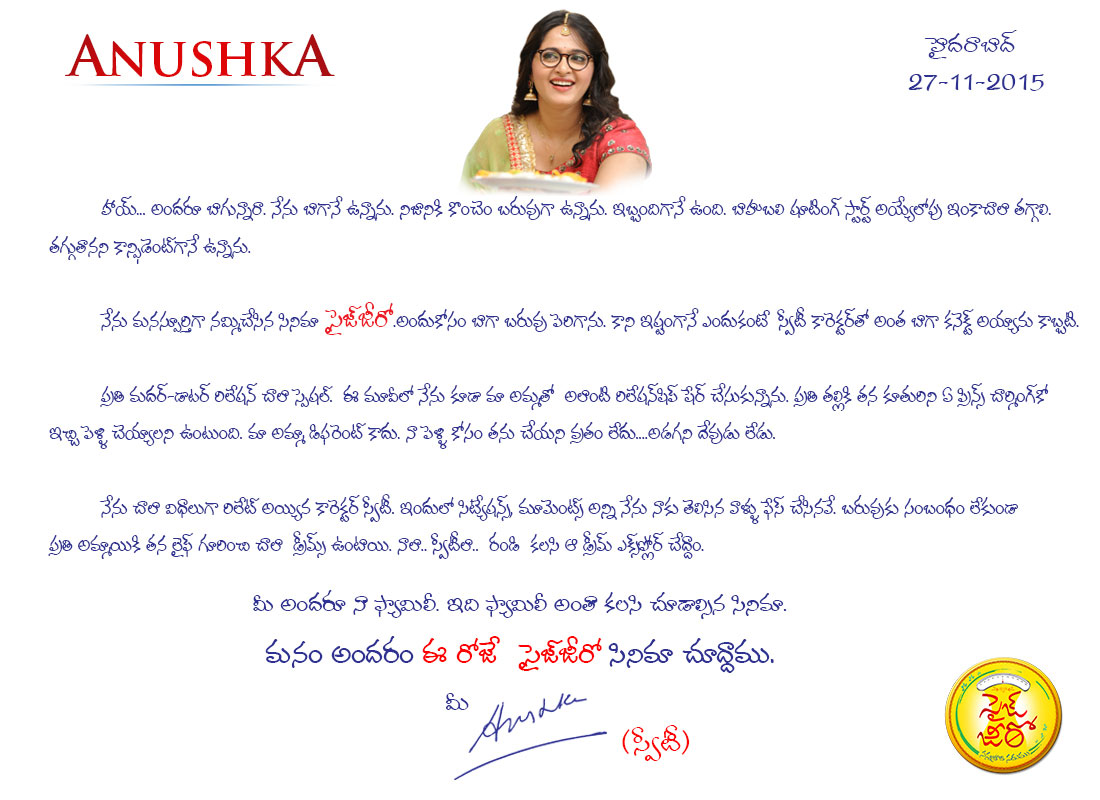 ANUSHKA
హైదరాబాద్
27-11-2015
హాయ్... అందరూ బాగున్నారా. నేను బాగానే ఉన్నాను. నిజానికి కొంచెం బరువుగా ఉన్నాను. ఇబ్బందిగానే ఉంది. బాహుబలి షూటింగ్ స్టార్ట్ అయ్యేలోపు ఇంకాచాలా తగ్గాలి.
తగ్గుతానని కాన్ఫిడెంట్‌గానే ఉన్నాను.
నేను మనస్పూర్తిగా నమ్మిచేసిన సినిమా సైజ్‌జీరో.అందుకోసం బాగా బరువు పెరిగాను. కాని ఇష్టంగానే ఎందుకంటే స్వీటీ కారెక్టర్‌తో అంత బాగా కనెక్ట్ అయ్యాను కాబ్బటి.
ప్రతి మదర్-డాటర్ రిలేషన్ చాలా స్పెషల్. ఈ మూవీలో నేను కూడా మా అమ్మతో అలాంటి రిలేషన్‌షిప్ షేర్ చేసుకున్నాను. ప్రతి తల్లికి తన కూతురిని ఏ ప్రిన్స్ చార్మింగ్‌కో
ఇచ్చి పెళ్ళి చెయ్యాలని ఉంటుంది. మా అమ్మా డిఫరెంట్ కాదు. నా పెళ్ళి కోసం తను చేయని వ్రతం లేదు....అడగని దేవుడు లేడు.
నేను చాలా విధాలుగా రిలేట్ అయ్యిన కారెక్టర్ స్వీటీ. ఇందులో సిట్యేషన్స్, మూమెంట్స్ అన్ని నేను నాకు తెలిసిన వాళ్ళు ఫేస్ చేసినవే. బరువుకు సంబంధం లేకుండా
ప్రతి అమ్మాయికి తన లైఫ్ గూరించి చాలా డ్రీమ్స్ ఉంటాయి. నాలా.. స్వీటీలా.. రండి కలసి ఆ డ్రీమ్ ఎక్స్‌ప్లోర్ చేద్దాం.
మీ అందరూ నా ఫ్యామిలీ. ఇది ఫ్యామిలీ అంతా కలసి చూడాల్సిన సినిమా.
మనం అందరం ఈ రోజే సైజ్‌జీరో సినిమా చూద్దాము.
మీ
Anushka
(స్వీటీ)
సైజ్
జీరో